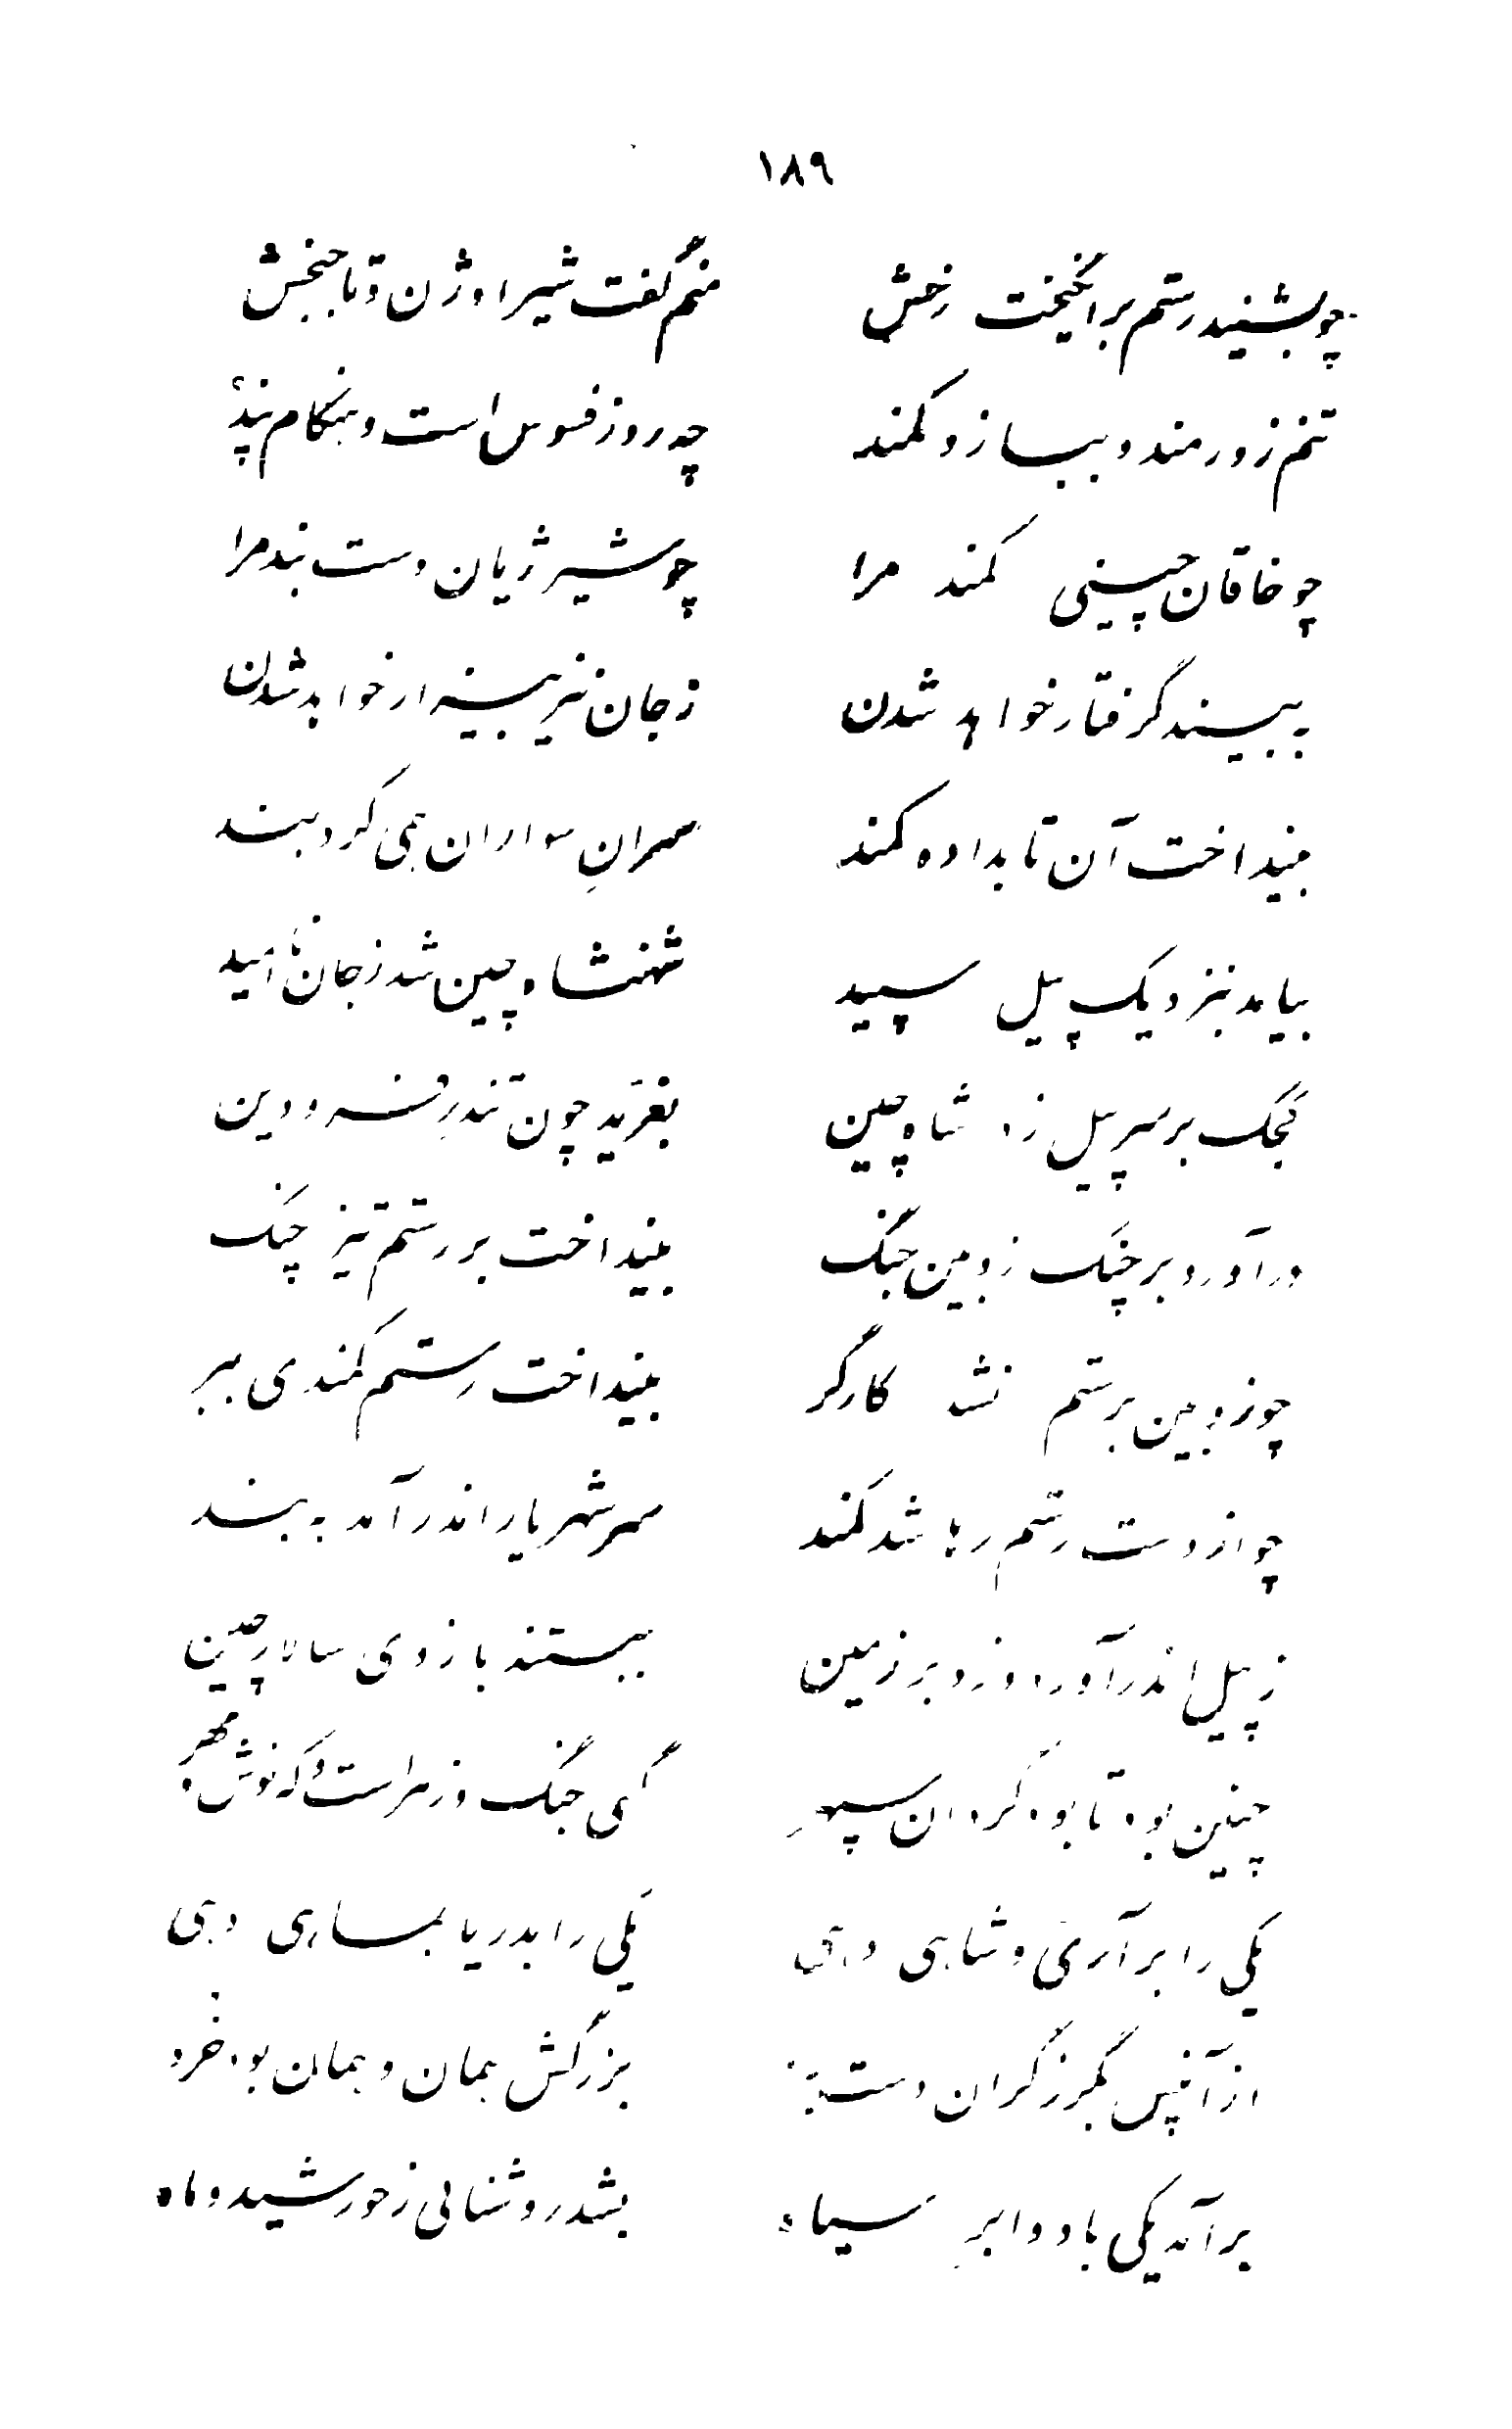 ۱۸۹
چو بشنید رستم برانگیخت رخش
منم گفت شیر اوژن و تاجبخش
تنم زورمند و ببازو کمند
چه روز فسوس است و هنگام پند؟
چو خاقان چینی کمند مرا
چو شیر ژیان دست بند مرا
به بیند گرفتار خواهد شدن
ز جان نیز بیزار خواهد شدن
بینداخت آن تابداده کمند
سرانِ سواران همی کرد بند
بیامد بنزدیک پیل سپید
شهنشاه چین شد ز جان ناامید
کجک بر سر پیل زد شاه چین
بغرّید چون تندر فرودین
درآورد بر چنگ زوبین جنگ
بینداخت بر رستم تیز چنگ
چو زوبین برستم نشد کارگر
بینداخت رستم کمندی ببر
چو از دست رستم رها شد کمند
سر شهریار اندر آمد به بند
ز پیل اندر آورد و زد بر زمین
ببستند بازوی سالار چین
چنین بود تا بود گردان سپهر
گهی جنگ و زهر است و گه نوش و مهر
یکی را برآری و شاهی دهی
یکی را بدریا بماهی دهی
از آنپس بگرز گران دست برد
بزرگش همان و همان بود خرد
برآمد یکی باد و ابر سیاه
بشد روشنائی ز خورشید و ماه